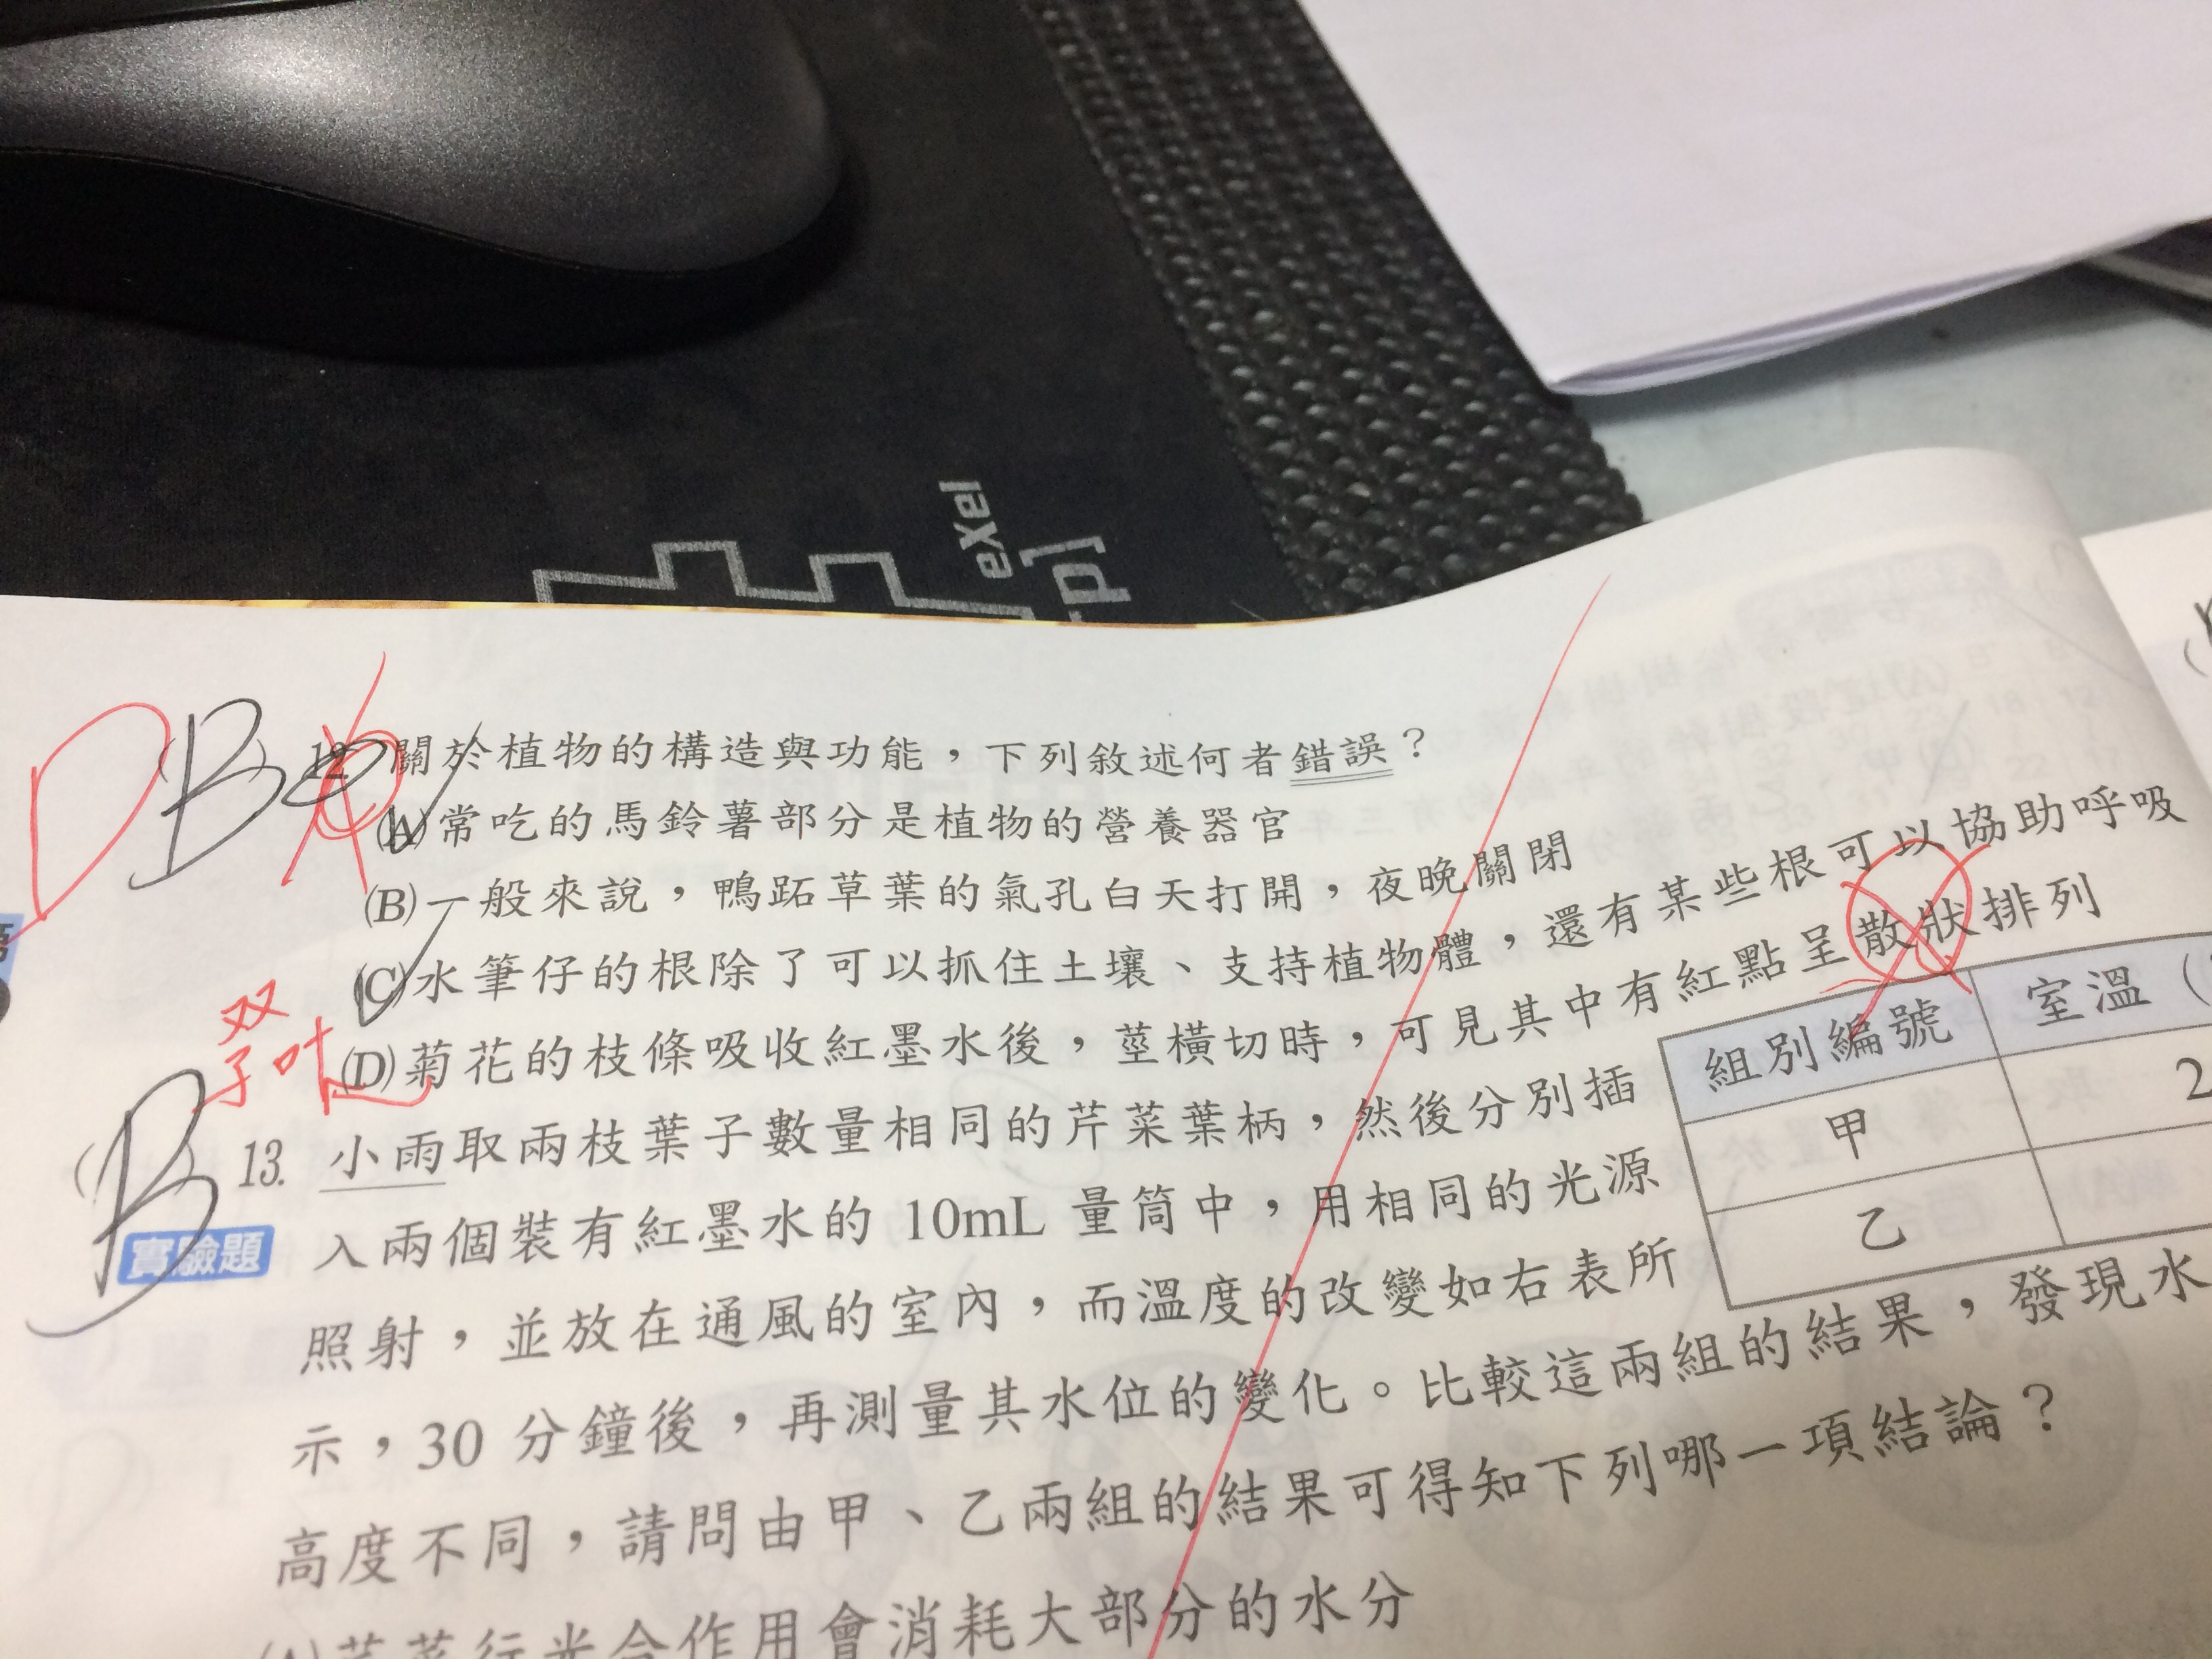 eXal
D B
12. 關於植物的構造與功能，下列敘述何者錯誤？
(A)常吃的馬鈴薯部分是植物的營養器官
(B)一般來說，鴨跖草葉的氣孔白天打開，夜晚關閉
(C)水筆仔的根除了可以抓住土壤、支持植物體，還有某些根可以協助呼吸
双
子叶
(D)菊花的枝條吸收紅墨水後，莖橫切時，可見其中有紅點呈散狀排列
(B) 13. 小雨取兩枝葉子數量相同的芹菜葉柄，然後分別插
實驗題
入兩個裝有紅墨水的 10mL 量筒中，用相同的光源
照射，並放在通風的室內，而溫度的改變如右表所
示，30 分鐘後，再測量其水位的變化。比較這兩組的結果，發現水
高度不同，請問由甲、乙兩組的結果可得知下列哪一項結論？
(A)芹菜行光合作用會消耗大部分的水分
組別編號 室溫（
甲 2
乙